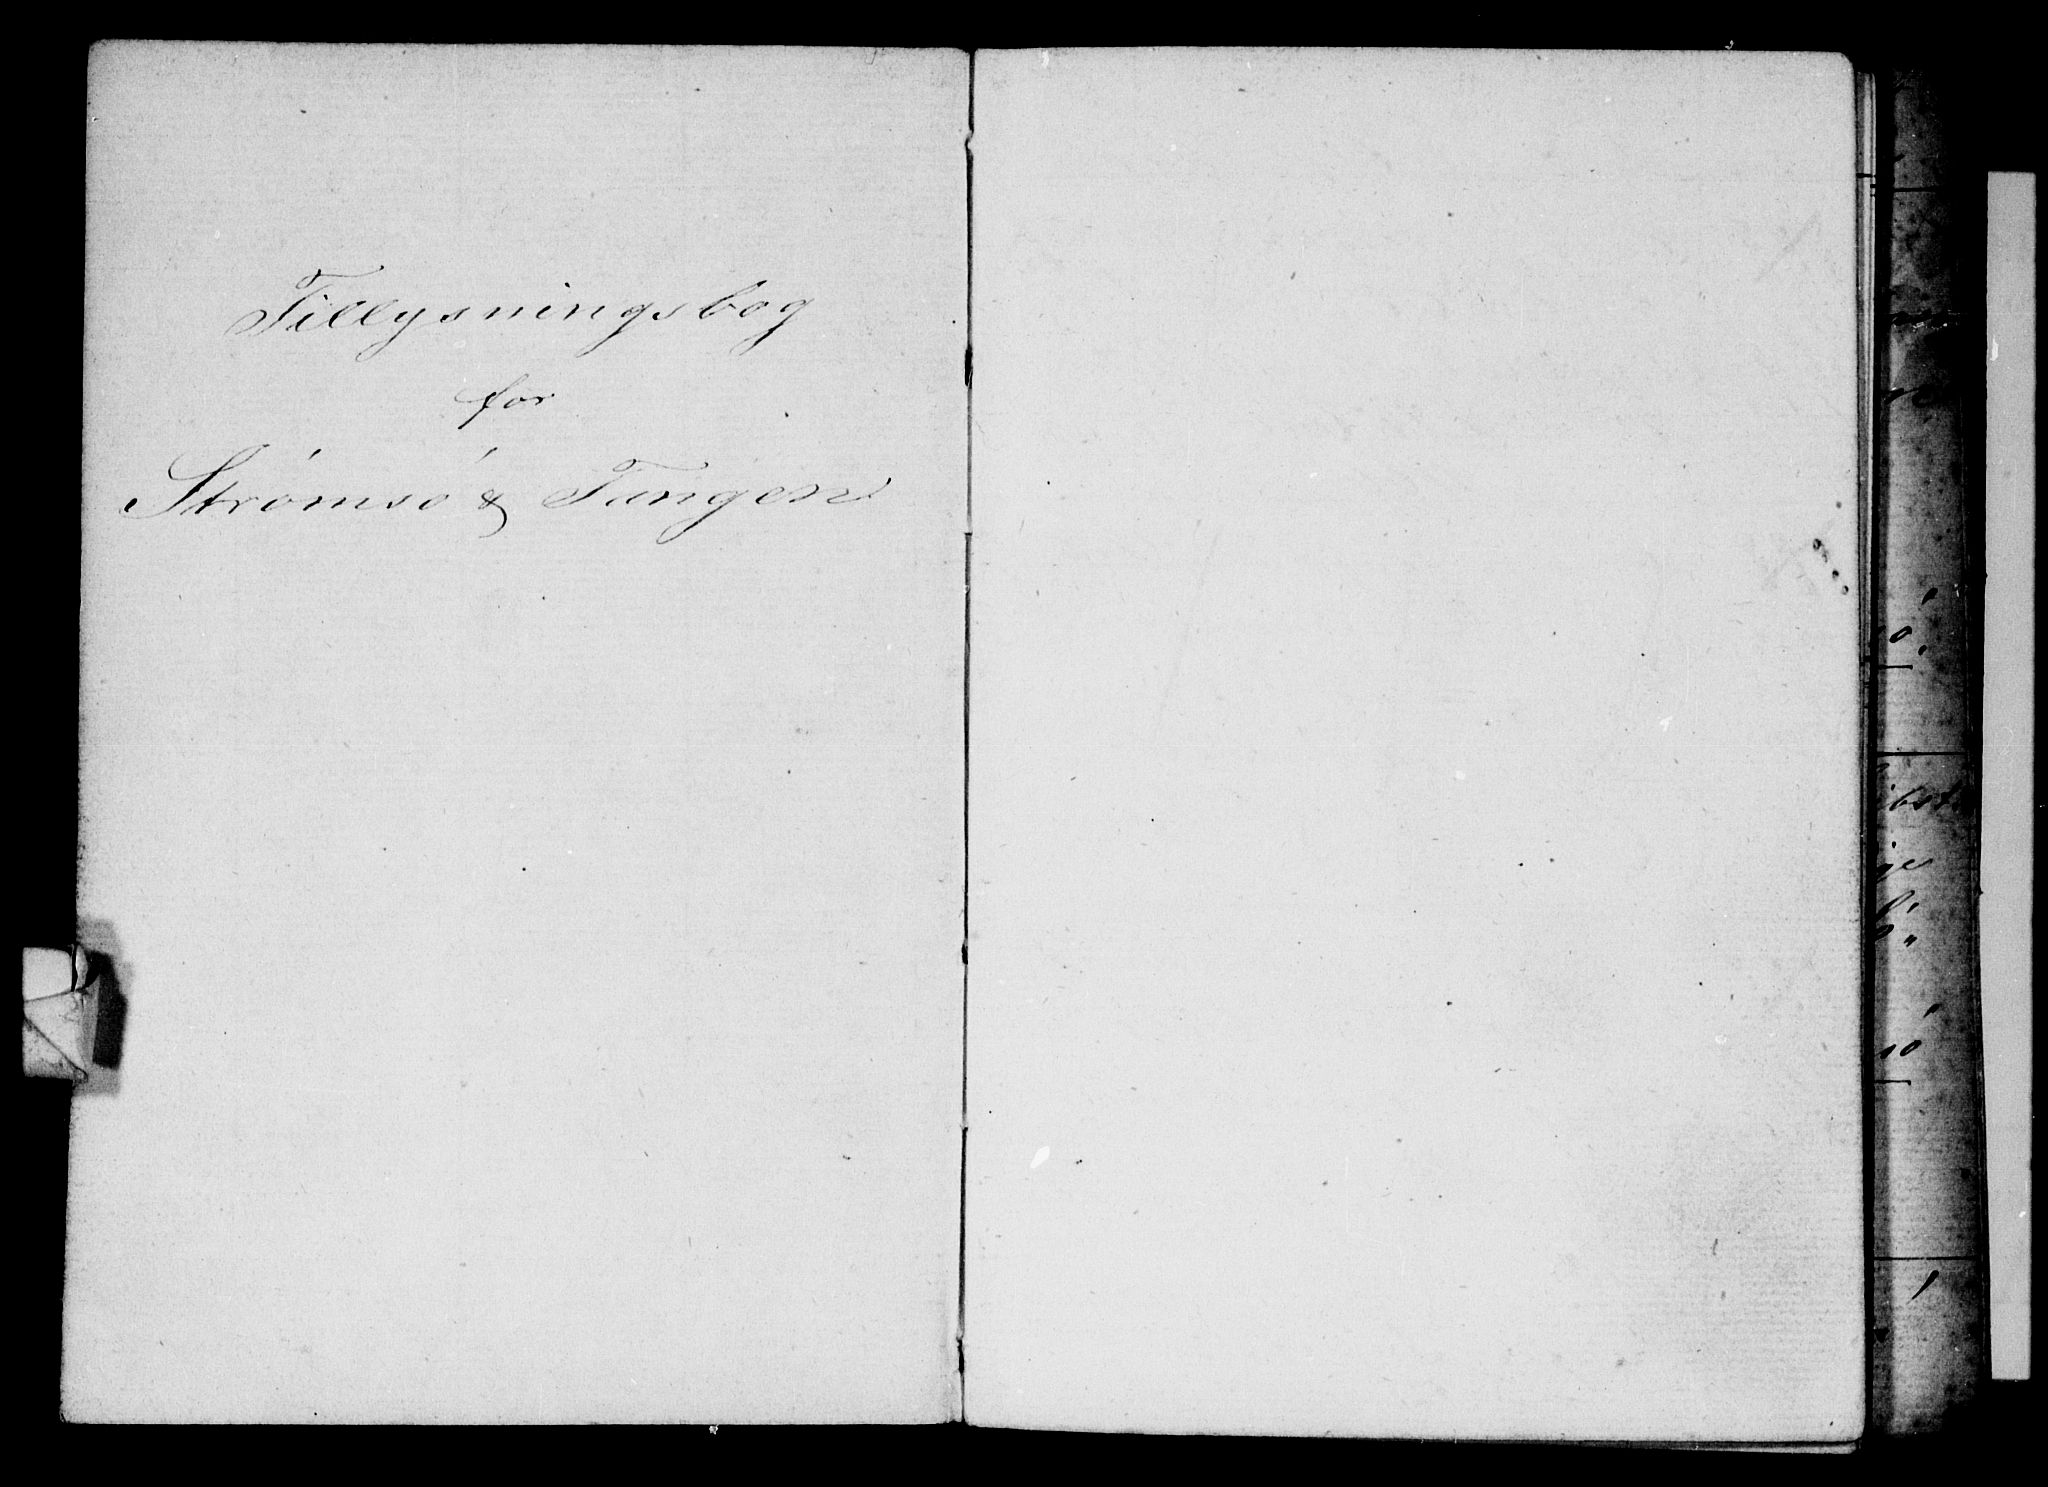 Tillysningsbog
for
Strømsø & Tangen